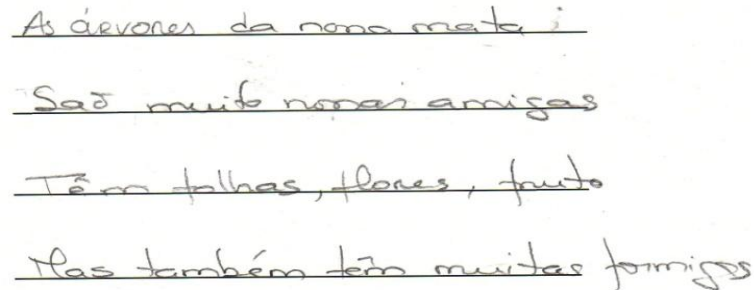 As árvores da nossa mata;
São muito nossas amigas
Têm folhas, flores, fruto
Mas também têm muitas formigas